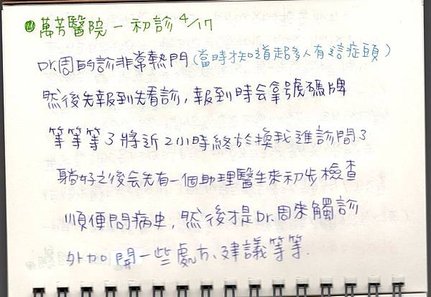 萬芳醫院 - 初診 4/17
Dr.周的診非常熱門(當時才知道超多人有這症頭)
然後先報到先看診,報到時会拿號碼牌
等等等了將近2小時終於換我進診間了
躺好之後会先有一個助理醫生來初步檢查
順便問病史,然後才是Dr.周來觸診
外加開一些處方、建議等等.